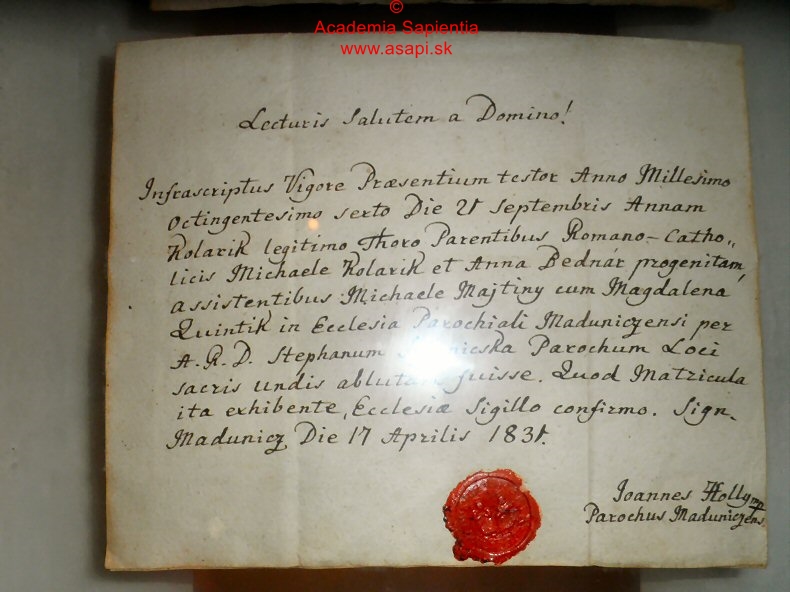 ©
Academia Sapientia
www.asapi.sk
Lecturis Salutem a Domino!
Infrascriptus Vigore Præsentium testor Anno Millesimo
Octingentesimo sexto Die 21 Septembris Annam
Kolarik legitimo Thoro Parentibus Romano-Catho„
licis Michaele Kolarik et Anna Bednar progenitam,
assistentibus Michaele Majtiny cum Magdalena
Quintik in Ecclesia Parochiali Maduniczensi per
A. R. D. Stephanum Parochum Loci
sacris undis ablutam fuisse. Quod Matricula
ita exhibente, Ecclesiæ Sigillo confirmo. Sign.
Madunicz Die 17 Aprilis 1831.
Joannes Holly mp
Parochus Maduniczens.